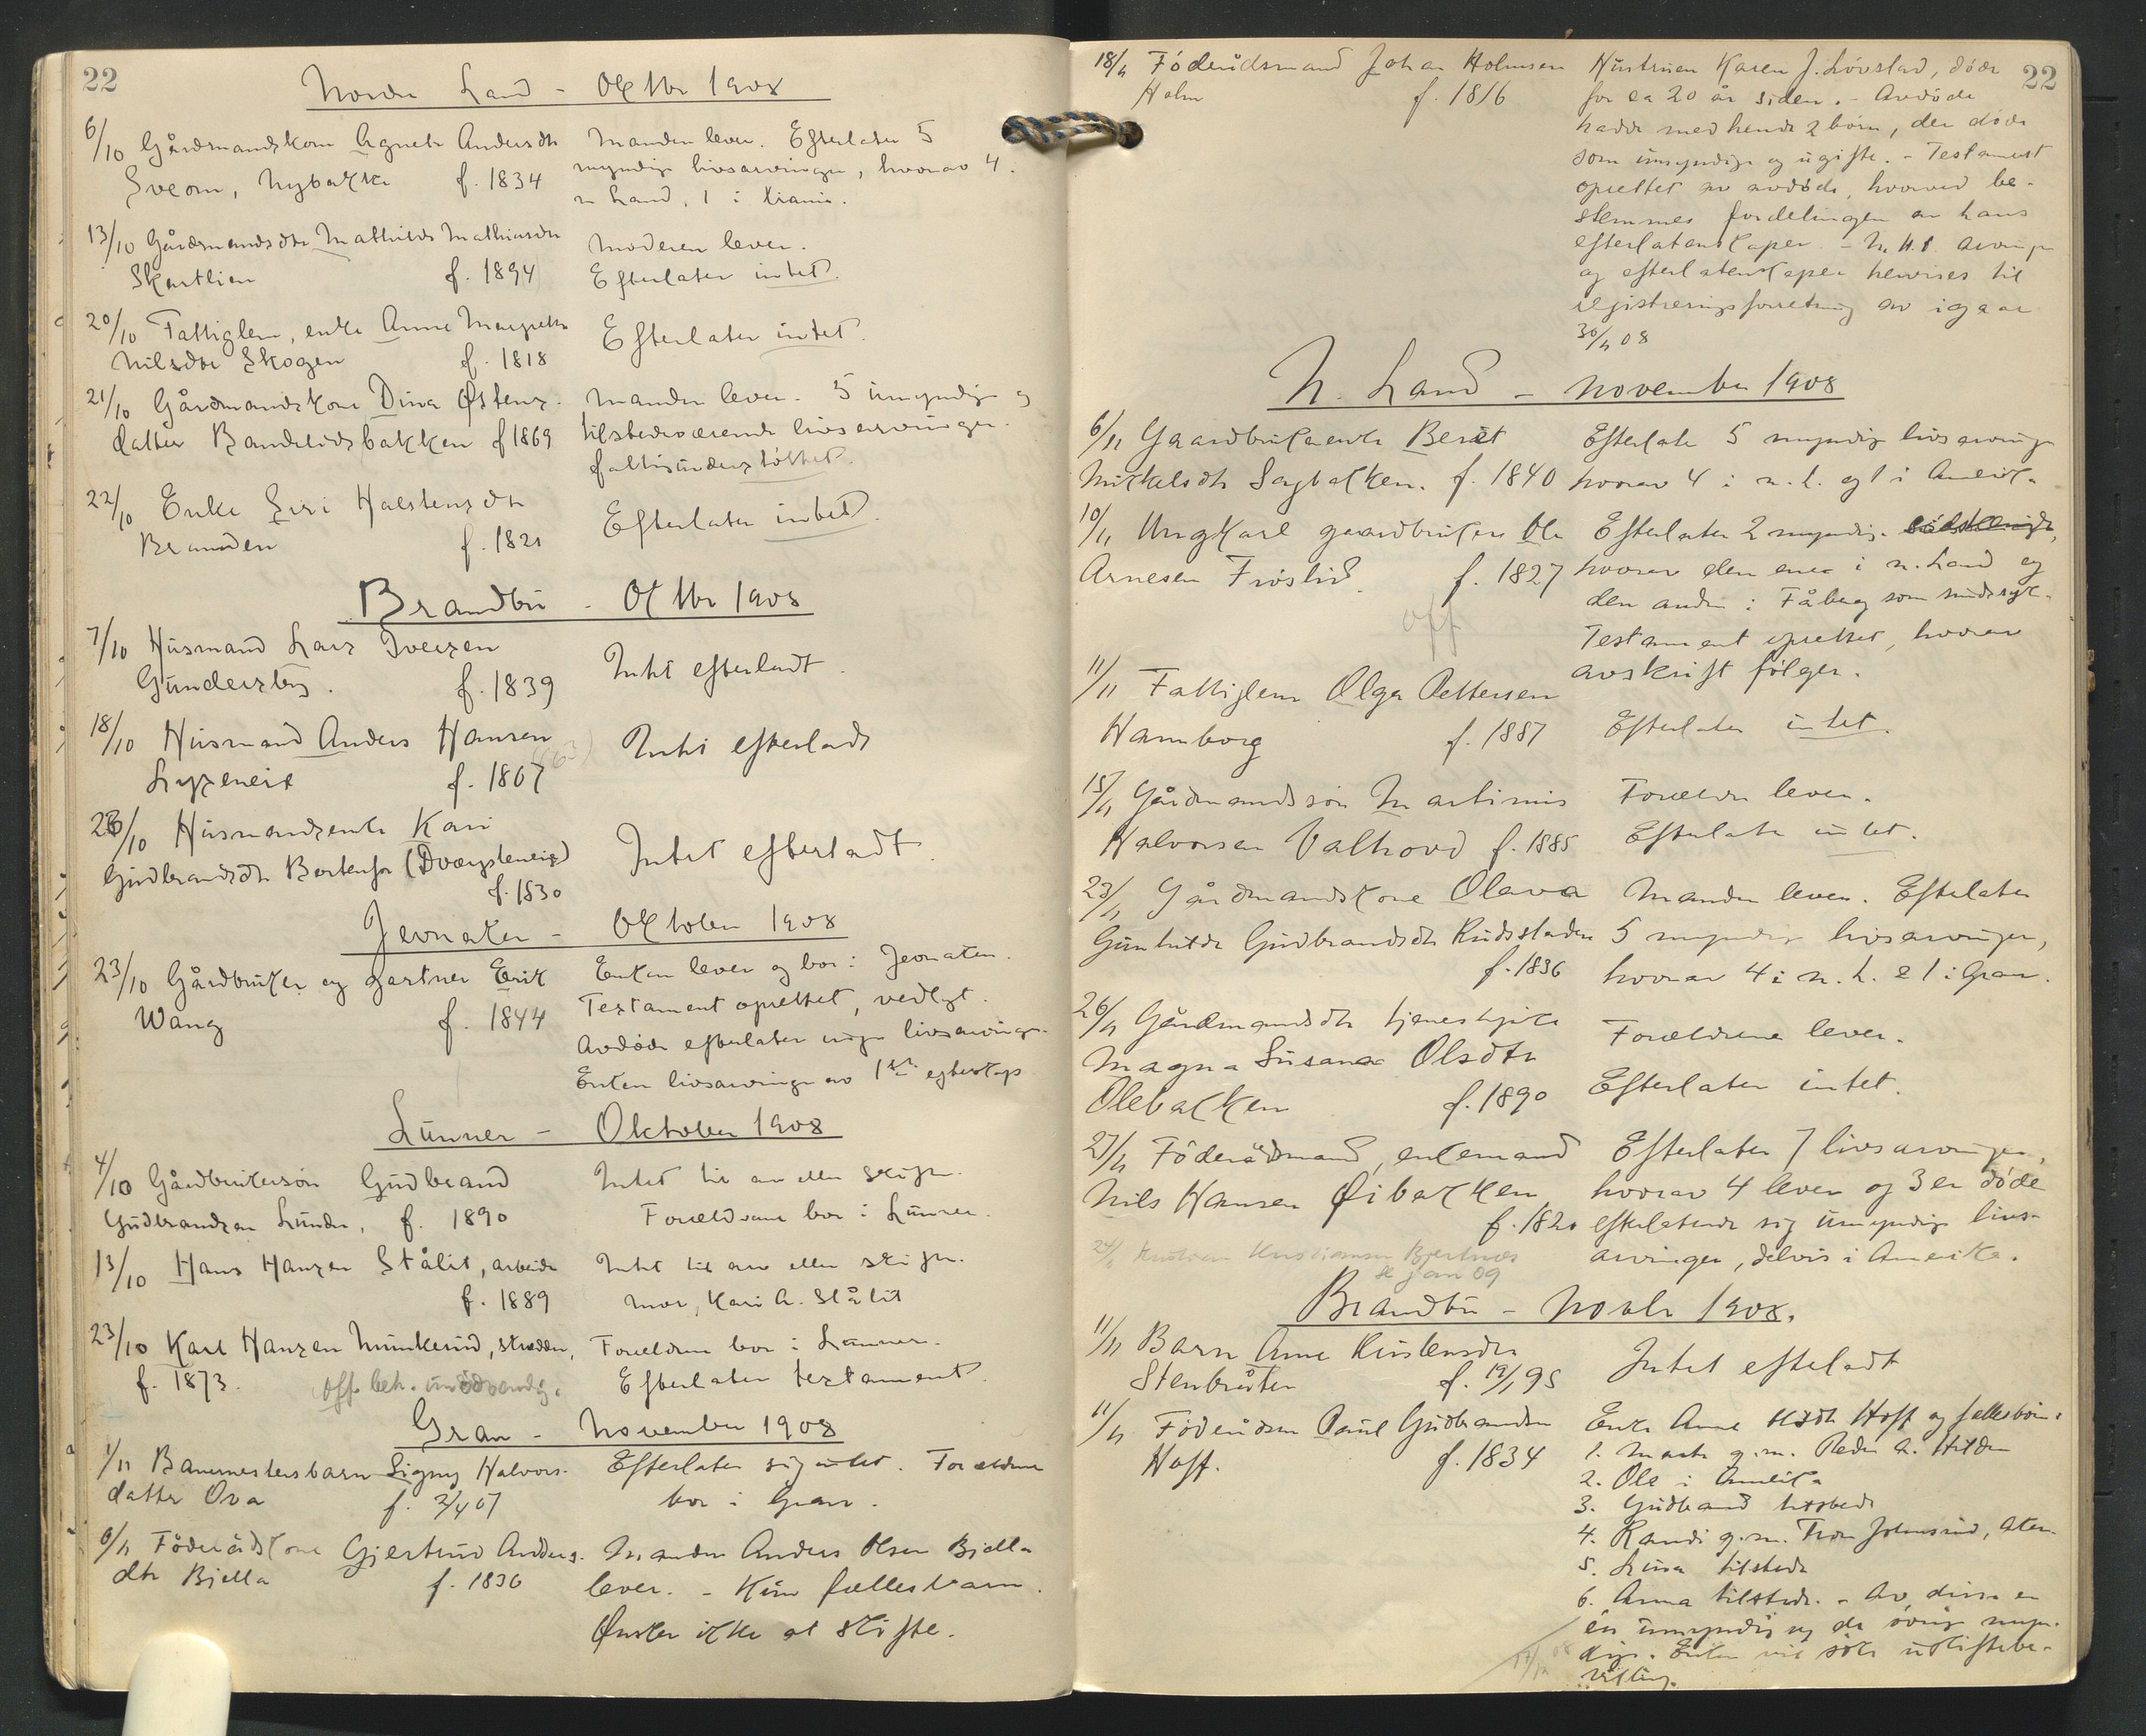 22
Nordre Land - Oktbr 1908
6/10 Gårdmandskone Agnete Andersdtr
Sveom, Nybakke f. 1834
Manden lever. Efterlater 5
myndige livsarvinger, hvorav 4 i
n. Land, 1 i Kr.ania.
13/10 Gårdmandsdtr Mathilde Mathiasdtr
Skartlien f. 1894
Moderen lever.
Efterlater intet.
20/10 Fattiglem, enke Anne Margrethe
Nilsdtr Skogen f. 1818
Efterlater intet.
21/10 Gårdmandskone Dina Østens-
datter Bandelidsbakken f 1869
Manden lever. 5 umyndige og
tilstedeværende livsarvinger.
fattigunderstøttet.
22/10 Enke Siri Halstensdtr
Brænden f. 1821
Efterlater intet.
Brandbu - Oktbr 1908
7/10 Husmand Lars Iversen
Gundersby. f. 1839
Intet efterladt.
18/10 Husmand Anders Hansen
Lyseneie f. 1867
Intet efterladt
26/10 Husmandsenke Kari
Gudbrandsdtr (Dvergsteneie)
f. 1830
Intet efterladt.
Jevnaker - Oktober 1908
23/10 Gårdbruker og gartner Erik
Wang f. 1844
Enken lever og bor i Jevnaker.
Testament oprettet, vedlagt.
Avdøde efterlater ingen livsarvinger.
Enken livsarvinger av 1ste egteskap
Lunner - Oktober 1908
4/10 Gårdbrukersøn Gudbrand
Gudbrandsen Lunder, f. 1890
Intet til arv eller skifte.
Forældrene bor i Lunner.
13/10 Hans Hansen Stålit, arbeider
f. 1889
Intet til arv eller skifte.
Mor, Kari A. Stålit
23/10 Karl Hansen Munkerud, skrædder,
f. 1873. Off. beh. unødvendig.
Forældrene bor i Lunner.
Efterlater testament.
Gran - November 1908
1/11 Banemestersbarn Signy Halvors-
datter Ova f. 2/4 07
Efterlater sig intet. Forældrene
bor i Gran.
6/11 Føderådskone Gjertrud Anders-
dtr Bjella f. 1836
Manden Anders Olsen Bjella
lever. - Kun fællesbarn.
Ønsker ikke at skifte.
22
18/11 Føderådsmand Johan Holmsen
Holm f. 1816
Hustruen Karen J. Løvstad, døde
for ca 20 år siden. - Avdøde
hadde med hende 2 børn, der døde
som umyndige og ugifte. - Testament
oprettet av avdøde, hvorved be-
stemmes fordelingen av hans
efterlatenskaper. - M. H. t. arvinger
og efterlatenskaper henvises til
registreringsforretning av igaar
30/11 08
N. Land - November 1908
6/11 Gaardbrukerenke Berit
Mikkelsdtr Sagbakken. f. 1840
Efterlater 5 myndige livsarvinger
hvorav 4 i n. L. og 1 i Amerika
10/11 Ungkarl gaardbruker Ole
Arnesen Frøslid. f. 1827
off
Efterlater 2 myndige
hvorav den ene i n. Land og
den andre i Fåberg som sindssyk.
Testament oprettet, hvorav
avskrift følger.
11/11 Fattiglem Olga Pettersen
Hamborg f. 1887
Efterlater intet.
15/11 Gårdmandssøn Martinius
Halvorsen Valhovd f. 1885
Forældre lever.
Efterlater intet.
23/11 Gårdmandskone Olava
Gunhilda Gudbrandsdtr Rudsstaden
f. 1836
Manden lever. Efterlater
5 myndige livsarvinger,
hvorav 4 i n. L. & 1 i Gran.
26/11 Gårdmandsdtr tjenestepike
Magna Susana Olsdtr
Olebakken f. 1890
Forældrene lever.
Efterlater intet.
27/11 Føderådsmand, enkemand
Nils Hansen Øibakken
f. 1820
Efterlater 7 livsarvinger,
hvorav 4 lever og 3 er døde
efterlatende sig umyndige livs-
arvinger, delvis i Amerika.
24/11 Kristian Kristiansen Bjertnæs
se jan 09
Brandbu - Novbr 1908.
11/11 Barn Anne Kirstensdtr
Stenbråten f. 19/1 95
Intet efterladt
11/11 Føderådsm Paul Gudbrandsen
Hoff. f. 1834
Enke Anne Hoff og fellesbørn:
1. Marte g. m. Peder A. Hilden
2. Ole i Amerika
3. Gudbrand tilstede
4. Randi g. m. Tron Johnsrud,
5. Lina tilstede
6. Anna tilstede. - Av disse er
én umyndig og de øvrige myn-
dige. Enken vil søke uskiftebe-
villing.